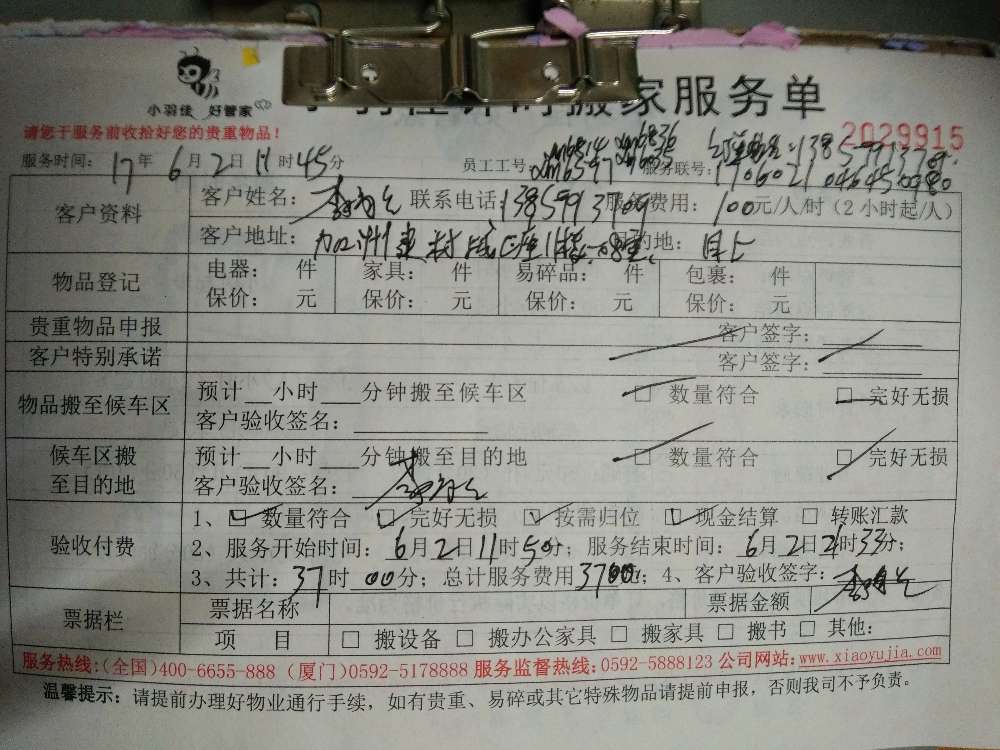 小羽佳 好管家
搬家服务单
请您于服务前收拾好您的贵重物品！
2029915
服务时间： 17年 6月 2日 11时 45分 员工工号： 服务联号：
客户资料 客户姓名： 联系电话： 13859913709 服务费用： 100元/人/时（2小时起/人）
客户地址： 加州建材城 目的地：
物品登记 电器： 件 家具： 件 易碎品： 件 包裹： 件
保价： 元 保价： 元 保价： 元 保价： 元
贵重物品申报 客户签字：
客户特别承诺 客户签字：
物品搬至候车区 预计__小时___分钟搬至候车区 □ 数量符合 □ 完好无损
客户验收签名：
候车区搬至目的地 预计__小时___分钟搬至目的地 □ 数量符合 □ 完好无损
客户验收签名：
验收付费 1、☑ 数量符合 ☑ 完好无损 ☑ 按需归位 ☑ 现金结算 □ 转账汇款
2、服务开始时间： 6月2日11时50分；服务结束时间： 6月2日 时33分；
3、共计：37时 00分；总计服务费用3700元；4、客户验收签字：
票据栏 票据名称 票据金额
项 目 □ 搬设备 □ 搬办公家具 □ 搬家具 □ 搬书 □ 其他：
服务热线:(全国)400-6655-888 (厦门)0592-5178888 服务监督热线:0592-5888123 公司网站:www.xiaoyujia.com
温馨提示：请提前办理好物业通行手续，如有贵重、易碎或其它特殊物品请提前申报，否则我司不予负责。